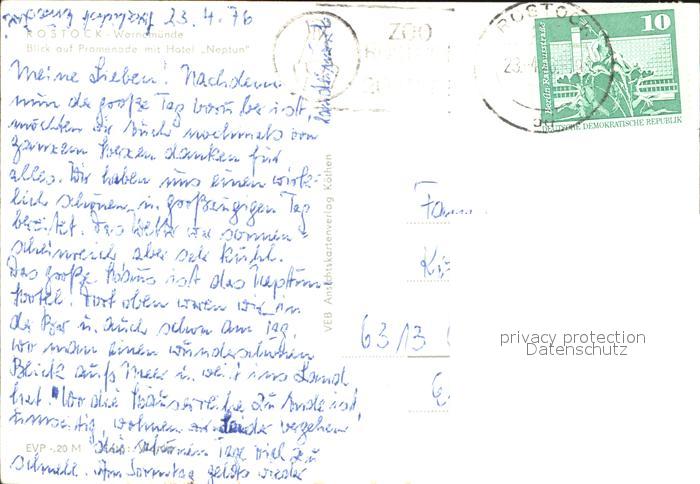 23. 4. 76
ROSTOCK - Warnemünde
Blick auf Promenade mit Hotel „Neptun"
Meine Lieben! Nachdem
nun der große Tag vorüber ist
möchten wir Euch nochmals von
ganzem Herzen danken für
alles. Wir haben uns einen wirk-
lich schönen Tag
bereitet. Das Wetter war sonnen-
scheinreich aber sehr kühl.
Das große Haus ist das Neptun
Hotel. Dort oben waren wir in
der Bar u. auch schon am Tag,
wo man einen wunderschönen
Blick aufs Meer u. weit ins Land
hat. Wo die Häuserreihe zu Ende ist,
wohnen wir. Leider vergehen
die schönen Tage viel zu
schnell. Am Sonntag geht's wieder
EVP -,20 M
VEB Ansichtskartenverlag Köthen
ZOO
ROSTOCK
23.4.
10
Berlin, Rathausstraße
DEUTSCHE DEMOKRATISCHE REPUBLIK
Fam
63 13
privacy protection
Datenschutz